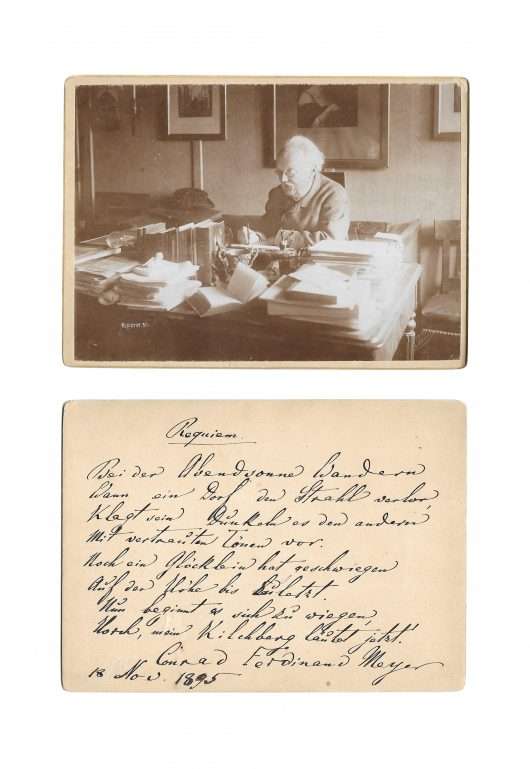 Requiem.
Bei der Abendsonne Wandern
Wann ein Dorf den Strahl verlor,
Klagt sein Dunkeln es den andern
Mit vertrauten Tönen vor.
Noch ein Glöcklein hat geschwiegen
Auf der Höhe bis zuletzt.
Nun beginnt es sich zu wiegen,
Horch, mein Kilchberg läutet jetzt!
Conrad Ferdinand Meyer
18 Nov. 1895